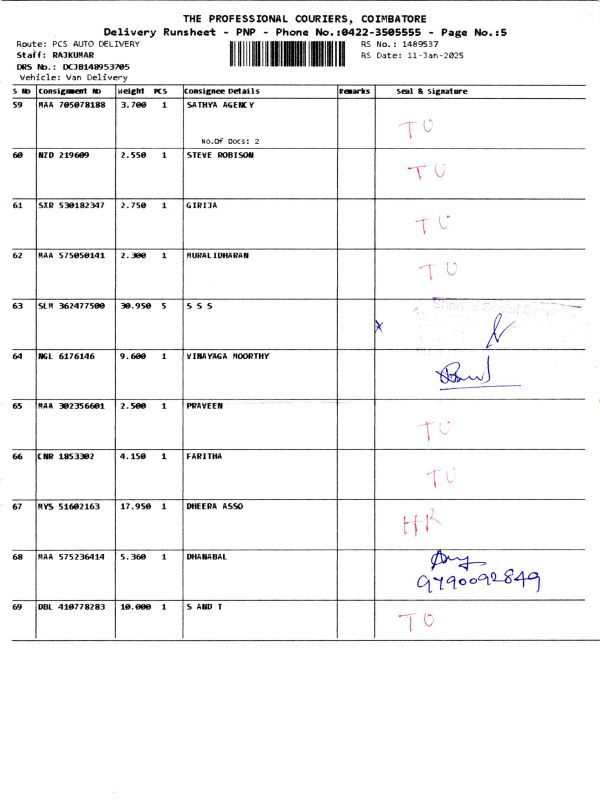 THE PROFESSIONAL COURIERS, COIMBATORE
Delivery Runsheet - PNP - Phone No.:0422-3505555 - Page No.:5
Route: PCS AUTO DELIVERY RS No.: 1489537
Staff: RAJKUMAR RS Date: 11-Jan-2025
DRS No.: DCJB148953705
Vehicle: Van Delivery
S No Consignment No Weight PCS Consignee Details Remarks Seal & Signature
59 MAA 705078188 3.700 1 SATHYA AGENCY
No.Of Docs: 2
TU
60 NZD 219609 2.550 1 STEVE ROBISON
TU
61 SXR 530182347 2.750 1 GIRIJA
TU
62 MAA 575050141 2.300 1 MURALIDHARAN
TU
63 SLM 362477500 30.950 5 S S S
64 NGL 6176146 9.600 1 VINAYAGA MOORTHY
65 MAA 302356601 2.500 1 PRAVEEN
TU
66 CNR 1853302 4.150 1 FARITHA
TU
67 MYS 51602163 17.950 1 DHEERA ASSO
HR
68 MAA 575236414 5.360 1 DHANABAL
9790092849
69 DBL 410778283 10.000 1 S AND T
TU